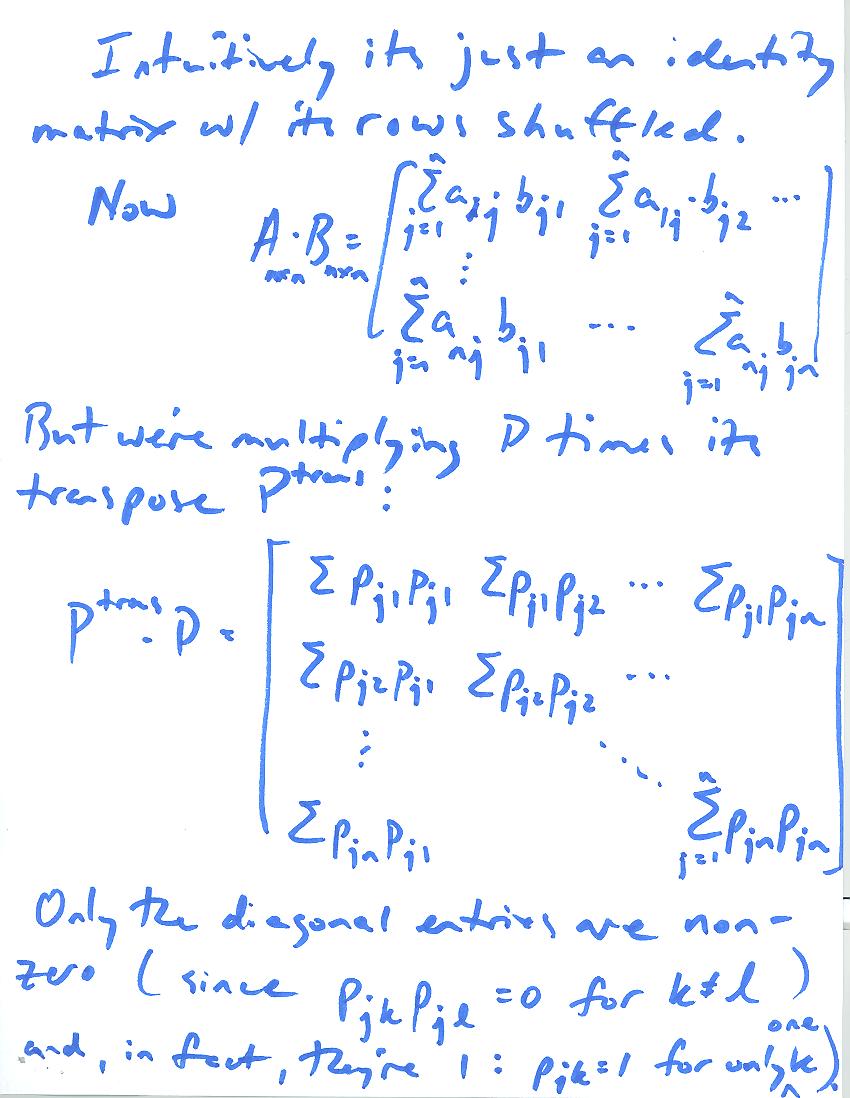 Intuitively its just an identity
matrix w/ its rows shuffled.
Now A·B = [ n Σ j=1 a_1j b_j1   n Σ j=1 a_1j · b_j2 ...
n×n n×n
⋮
n Σ j=n a_nj b_j1 ... n Σ j=1 a_nj b_jn ]
But we're multiplying P times its
transpose P^trans :
P^trans · P = [ Σ p_j1 p_j1   Σ p_j1 p_j2 ... Σ p_j1 p_jn
Σ p_j2 p_j1   Σ p_j2 p_j2 ...
⋮ ⋱
Σ p_jn p_j1   n Σ j=1 p_jn p_jn ]
Only the diagonal entries are non-
zero ( since p_jk p_jl = 0 for k ≠ l )
and, in fact, they're 1 : p_jk = 1 for only one k).